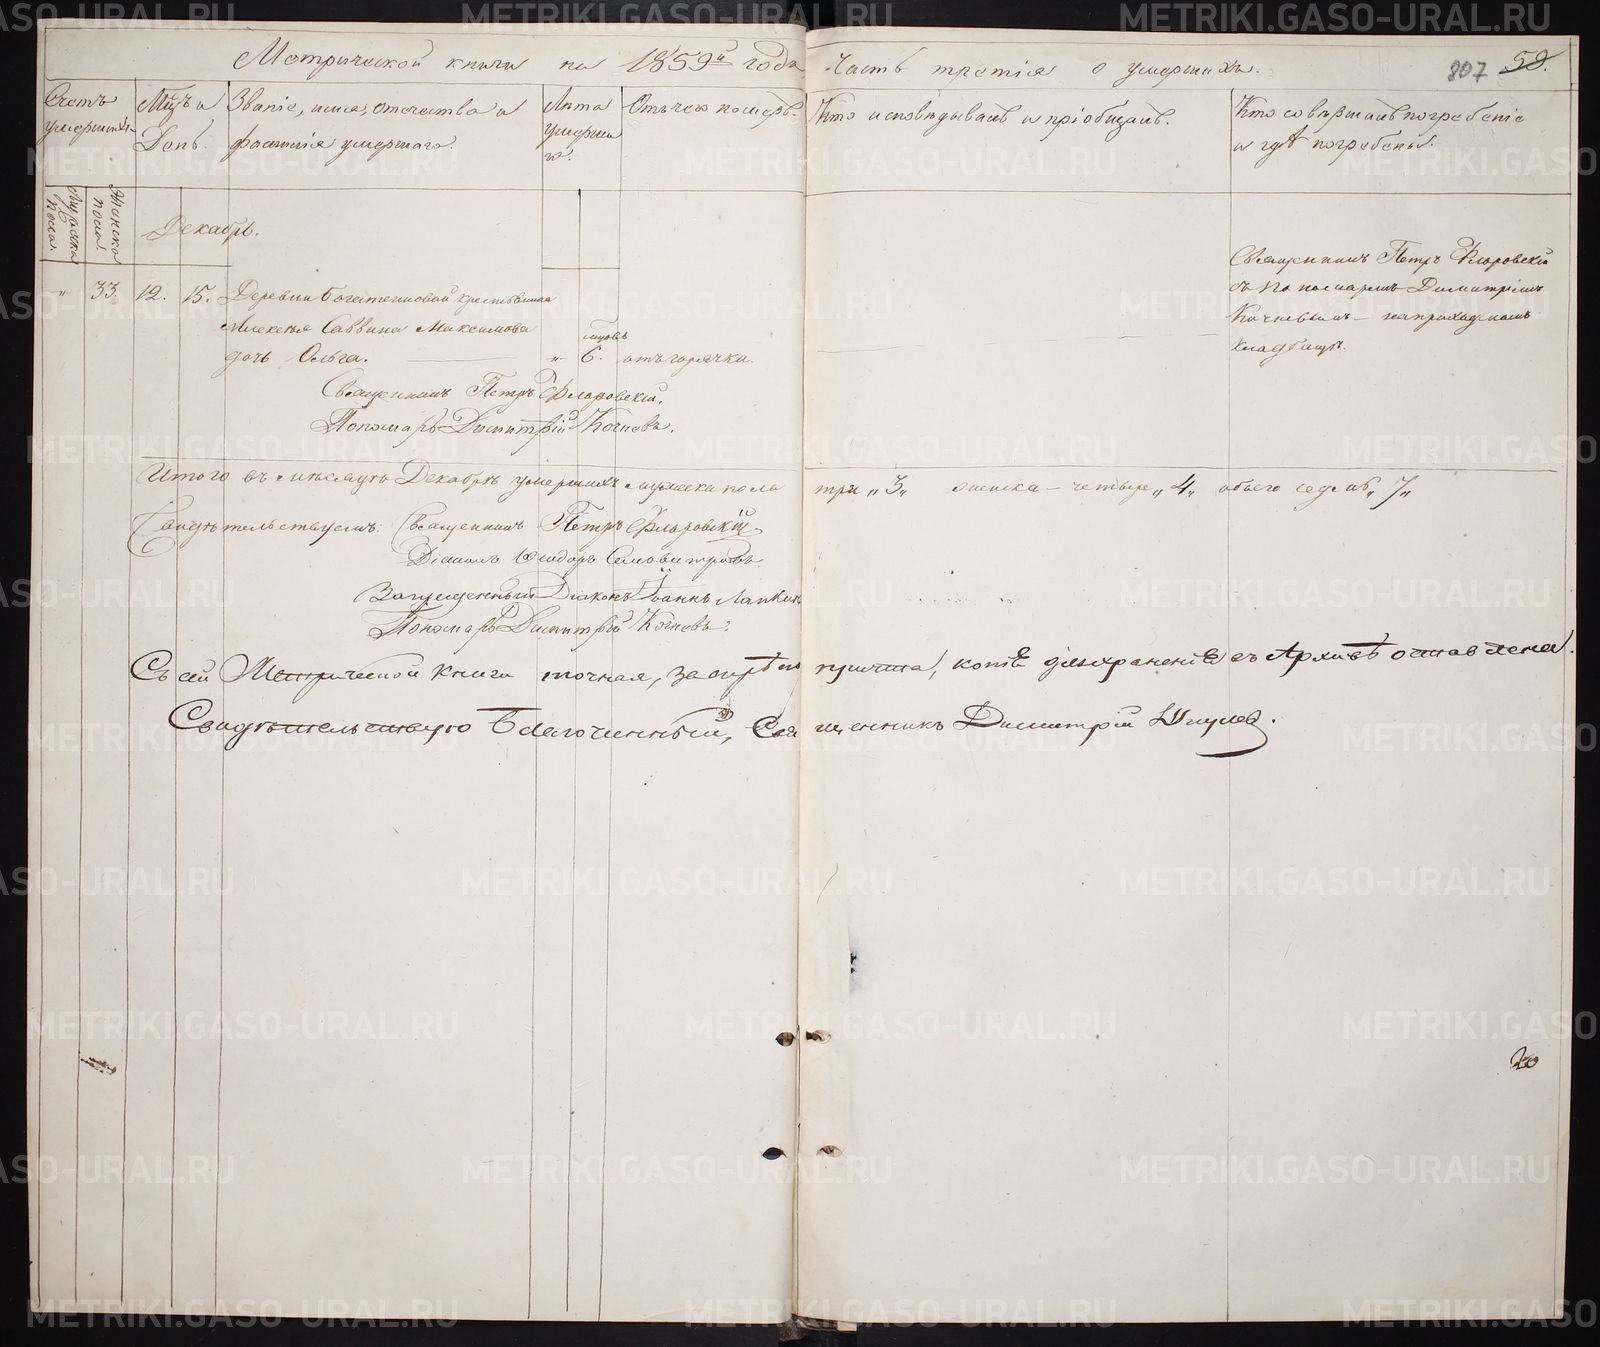 Метрической книги на 1859й года Часть третія о умершихъ. 807 58.
Счетъ умершихъ.
Мцъ и День.
Званіе, имя, отечество и фамилія умершаго.
Лета умершаго.
Отъ чего померъ.
Кто исповедывалъ и пріобщалъ.
Кто совершалъ погребеніе и гдѣ погребены.
Мужска пола.
Женска пола.
Декабрь.
" 33. 12. 15. Деревни крестьянина
Алексѣя Саввина Максимова
дочь Ольга. " 6. отъ горячки.
Священникъ Петръ Флоровскій
съ пономаремъ Димитріемъ
на приходскомъ
кладбищѣ.
Священникъ Петръ Флоровскій.
Пономарь Димитрій Кочневъ.
Итого въ мѣсяцѣ Декабрѣ умершихъ мужска пола три „3„ женска – четыре „4„ обоего седмь „7„
Свидѣтельствуемъ: Священникъ Петръ Флоровскій
Діаконъ Ѳеодоръ
Запрещенный Діаконъ Іоаннъ Лапкинъ
Пономарь Димитрій Кочневъ.
Съ сей Метрической книги точная, за причта, копія для храненія въ Архивѣ оставлена.
Свидѣтельствую Благочинный, Священникъ Димитрій
20
METRIKI.GASO-URAL.RU